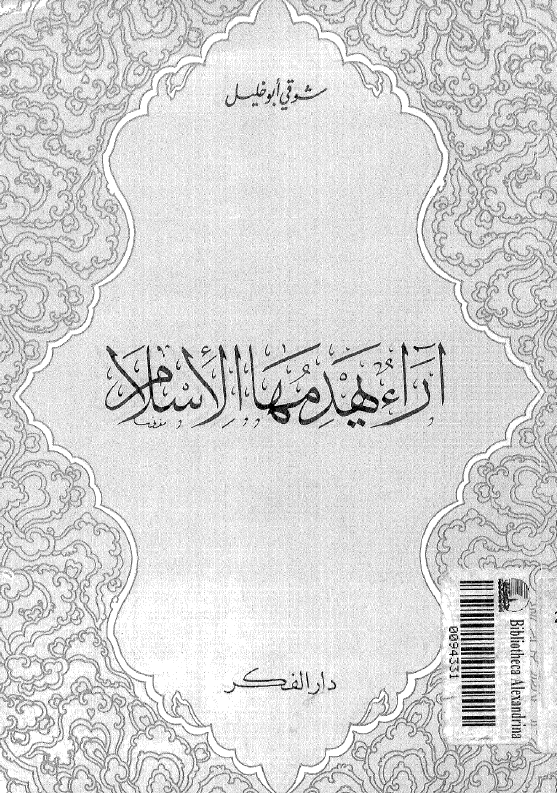 شوقي أبو خليل
آرَاءٌ يَهْدِمُهَا الإِسْلَام
دار الفكر
Bibliotheca Alexandrina
0094331